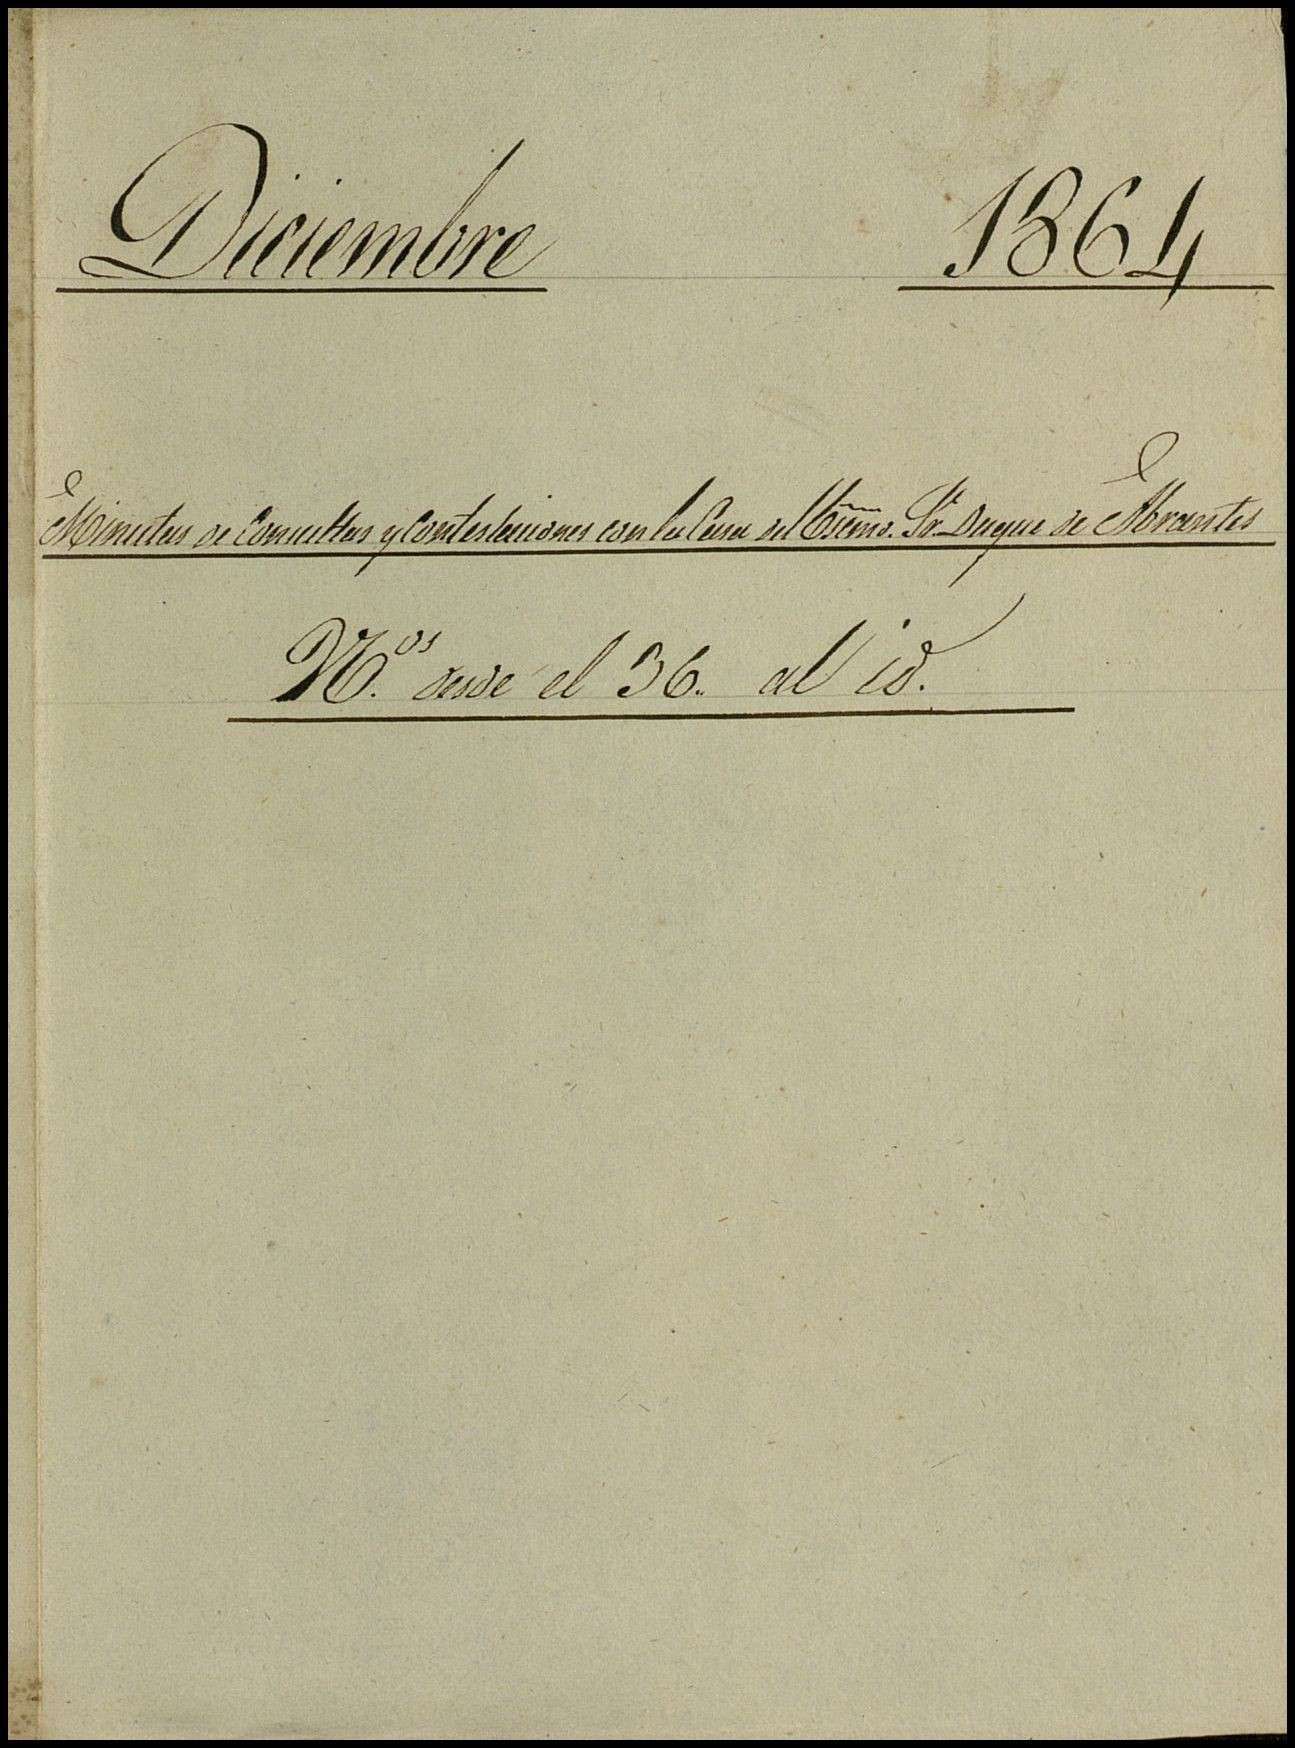 Diciembre 1864
Minutas de Consultas y Contestaciones con la Casa del Excmo. Sr. Duque de Abrantes
N.os desde el 36. al id.